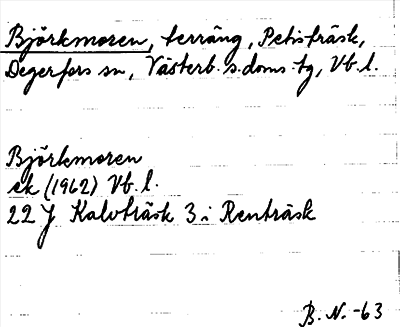 Björkmoren, terräng, Petisträsk,
Degerfors sn, Västerb. s. doms. tg, Vb. l.
Björkmoren
ek (1962) Vb. l.
22 J Kalvträsk 3 i Renträsk
B. N. -63